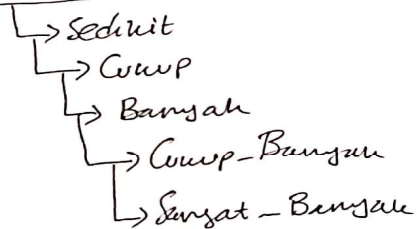 Sedikit
Cukup
Banyak
Cukup-Banyak
Sangat-Banyak